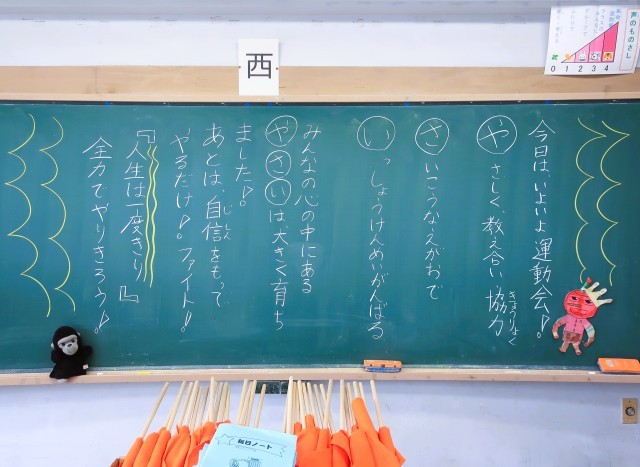 西
声のものさし
0 1 2 3 4
今日は、いよいよ運動会!!
やさしく、教え合い、協力
きょうりょく
さいこうなえがおで
いっしょうけんめいがんばる
みんなの心の中にある
やさいは大きく育ち
ました!!
あとは、自信をもって
じしん
やるだけ!!ファイト!!
『人生は一度きり』
全力でやりきろう!!
毎日ノート